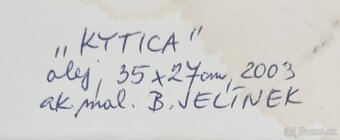 „KYTICA"
olej, 35x27cm, 2003
ak.mal. B. JELÍNEK
Bazos.sk